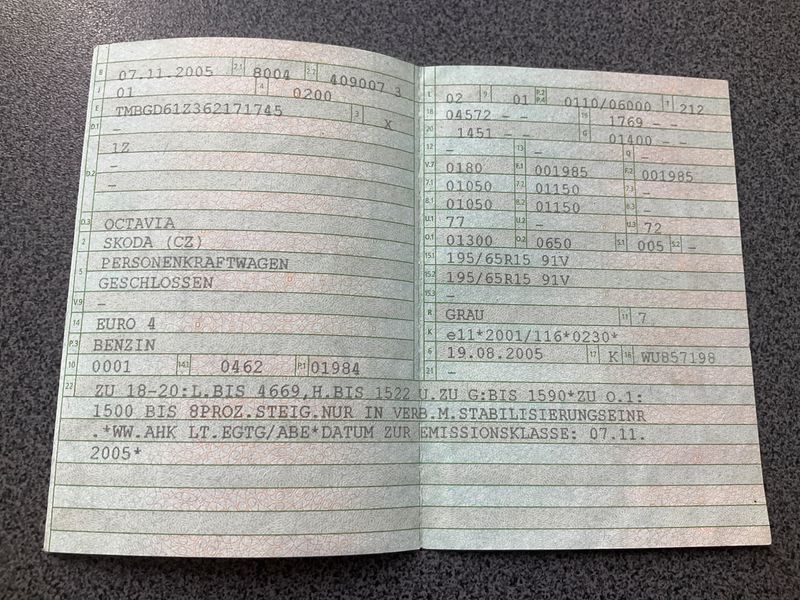 B 07.11.2005 2.1 8004 2.2 409007 3
J 01 4 0200
E TMBGD61Z362171745 3 X
D.1 –
1Z
D.2 –
–
D.3 OCTAVIA
2 SKODA (CZ)
5 PERSONENKRAFTWAGEN
GESCHLOSSEN
V.9 –
14 EURO 4
P.3 BENZIN
10 0001 14.1 0462 P.1 01984
L 02 9 01 P.2 P.4 0110/06000 T 212
18 04572 – – 19 1769 – –
20 1451 – – G 01400 – –
12 – 13 – Q –
V.7 0180 F.1 001985 F.2 001985
7.1 01050 7.2 01150 7.3 –
8.1 01050 8.2 01150 8.3 –
U.1 77 U.2 – U.3 72
O.1 01300 O.2 0650 S.1 005 S.2 –
15.1 195/65R15 91V
15.2 195/65R15 91V
15.3 –
R GRAU 11 7
K e11*2001/116*0230*
6 19.08.2005 17 K 16 WU857198
21 –
22 ZU 18-20:L.BIS 4669,H.BIS 1522 U.ZU G:BIS 1590*ZU O.1:
1500 BIS 8PROZ.STEIG.NUR IN VERB.M.STABILISIERUNGSEINR
.*WW.AHK LT.EGTG/ABE*DATUM ZUR EMISSIONSKLASSE: 07.11.
2005*